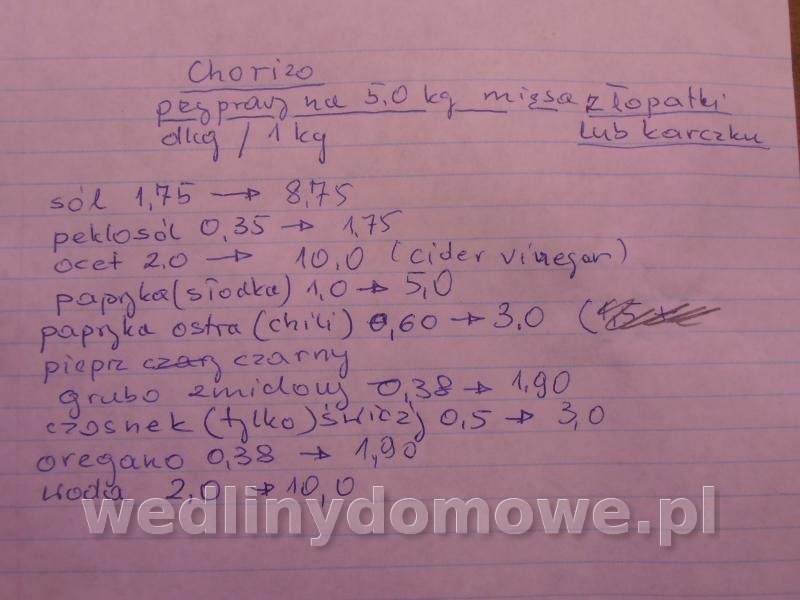 Chorizo
przyprawy na 5.0 kg mięsa z łopatki
dkg / 1 kg lub karczku
sól 1,75 → 8,75
peklosól 0,35 → 1,75
ocet 2.0 → 10,0 (cider vinegar)
papryka (słodka) 1,0 → 5,0
papryka ostra (chili) 0,60 → 3.0 (
pieprz czarny
grubo zmidowy 0,38 → 1,90
czosnek (tylko) świeży 0,5 → 3,0
oregano 0,38 → 1,90
woda 2.0 → 10,0
wedlinydomowe.pl